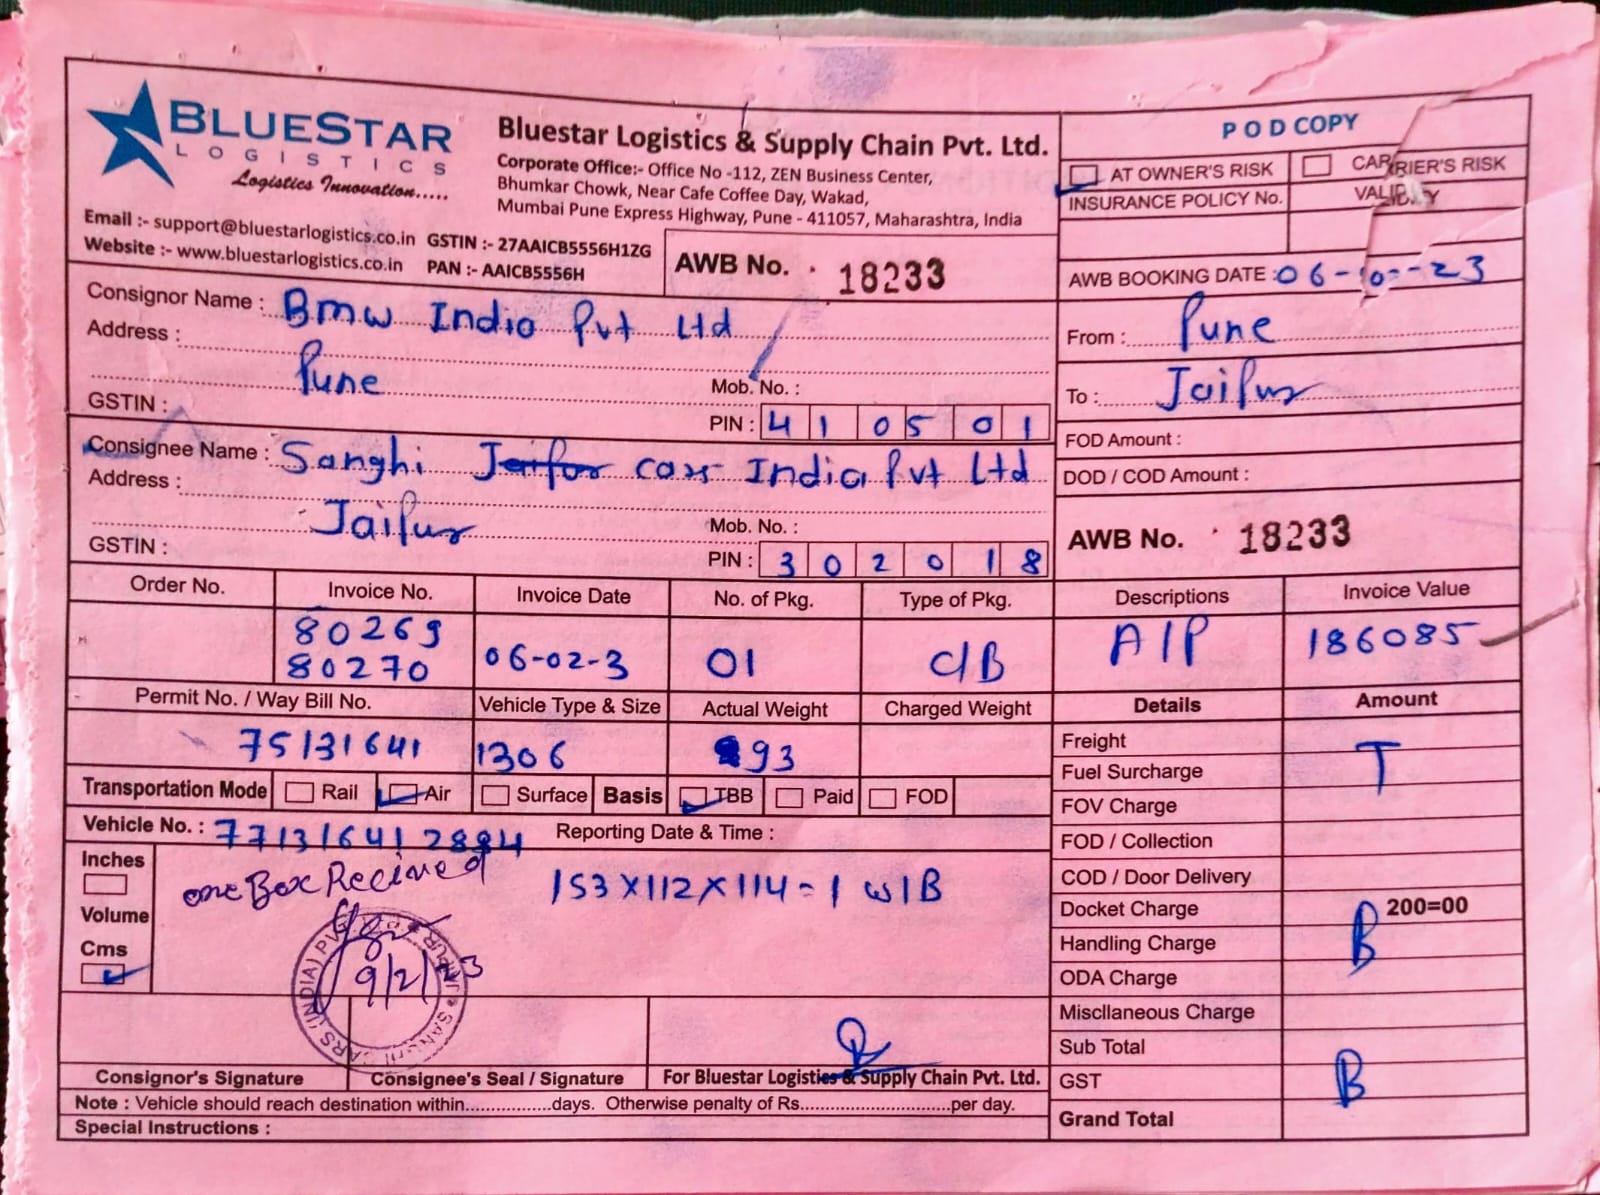 BLUESTAR
LOGISTICS
Logistics Innovation.....
Email :- support@bluestarlogistics.co.in
Website :- www.bluestarlogistics.co.in
Bluestar Logistics & Supply Chain Pvt. Ltd.
Corporate Office:- Office No -112, ZEN Business Center,
Bhumkar Chowk, Near Cafe Coffee Day, Wakad,
Mumbai Pune Express Highway, Pune - 411057, Maharashtra, India
GSTIN :- 27AAICB5556H1ZG
PAN :- AAICB5556H
AWB No. 18233
POD COPY
AT OWNER'S RISK CARRIER'S RISK
INSURANCE POLICY No. VALIDITY
AWB BOOKING DATE :
From : Pune
To : Jaipur
FOD Amount :
DOD / COD Amount :
AWB No. 18233
Consignor Name : Bmw India Pvt Ltd
Address :
Pune Mob. No. :
GSTIN : PIN : 410501
Consignee Name : Sanghi cars India Pvt Ltd
Address :
Jaipur Mob. No. :
GSTIN : PIN : 302018
Order No. Invoice No. Invoice Date No. of Pkg. Type of Pkg. Descriptions Invoice Value
80269
80270 06-02-3 01 C/B A/P 186085
Permit No. / Way Bill No. Vehicle Type & Size Actual Weight Charged Weight
75131641 1306 93
Transportation Mode Rail Air Surface Basis TBB Paid FOD
Vehicle No. : Reporting Date & Time :
Inches
Volume
Cms
one Box Recived
153X112X114-1 W/B
9/2/23
Details Amount
Freight T
Fuel Surcharge
FOV Charge
FOD / Collection
COD / Door Delivery
Docket Charge 200=00
Handling Charge B
ODA Charge
Miscllaneous Charge
Sub Total
GST B
Grand Total
Consignor's Signature Consignee's Seal / Signature For Bluestar Logistics & Supply Chain Pvt. Ltd.
Note : Vehicle should reach destination within..................days. Otherwise penalty of Rs................................per day.
Special Instructions :